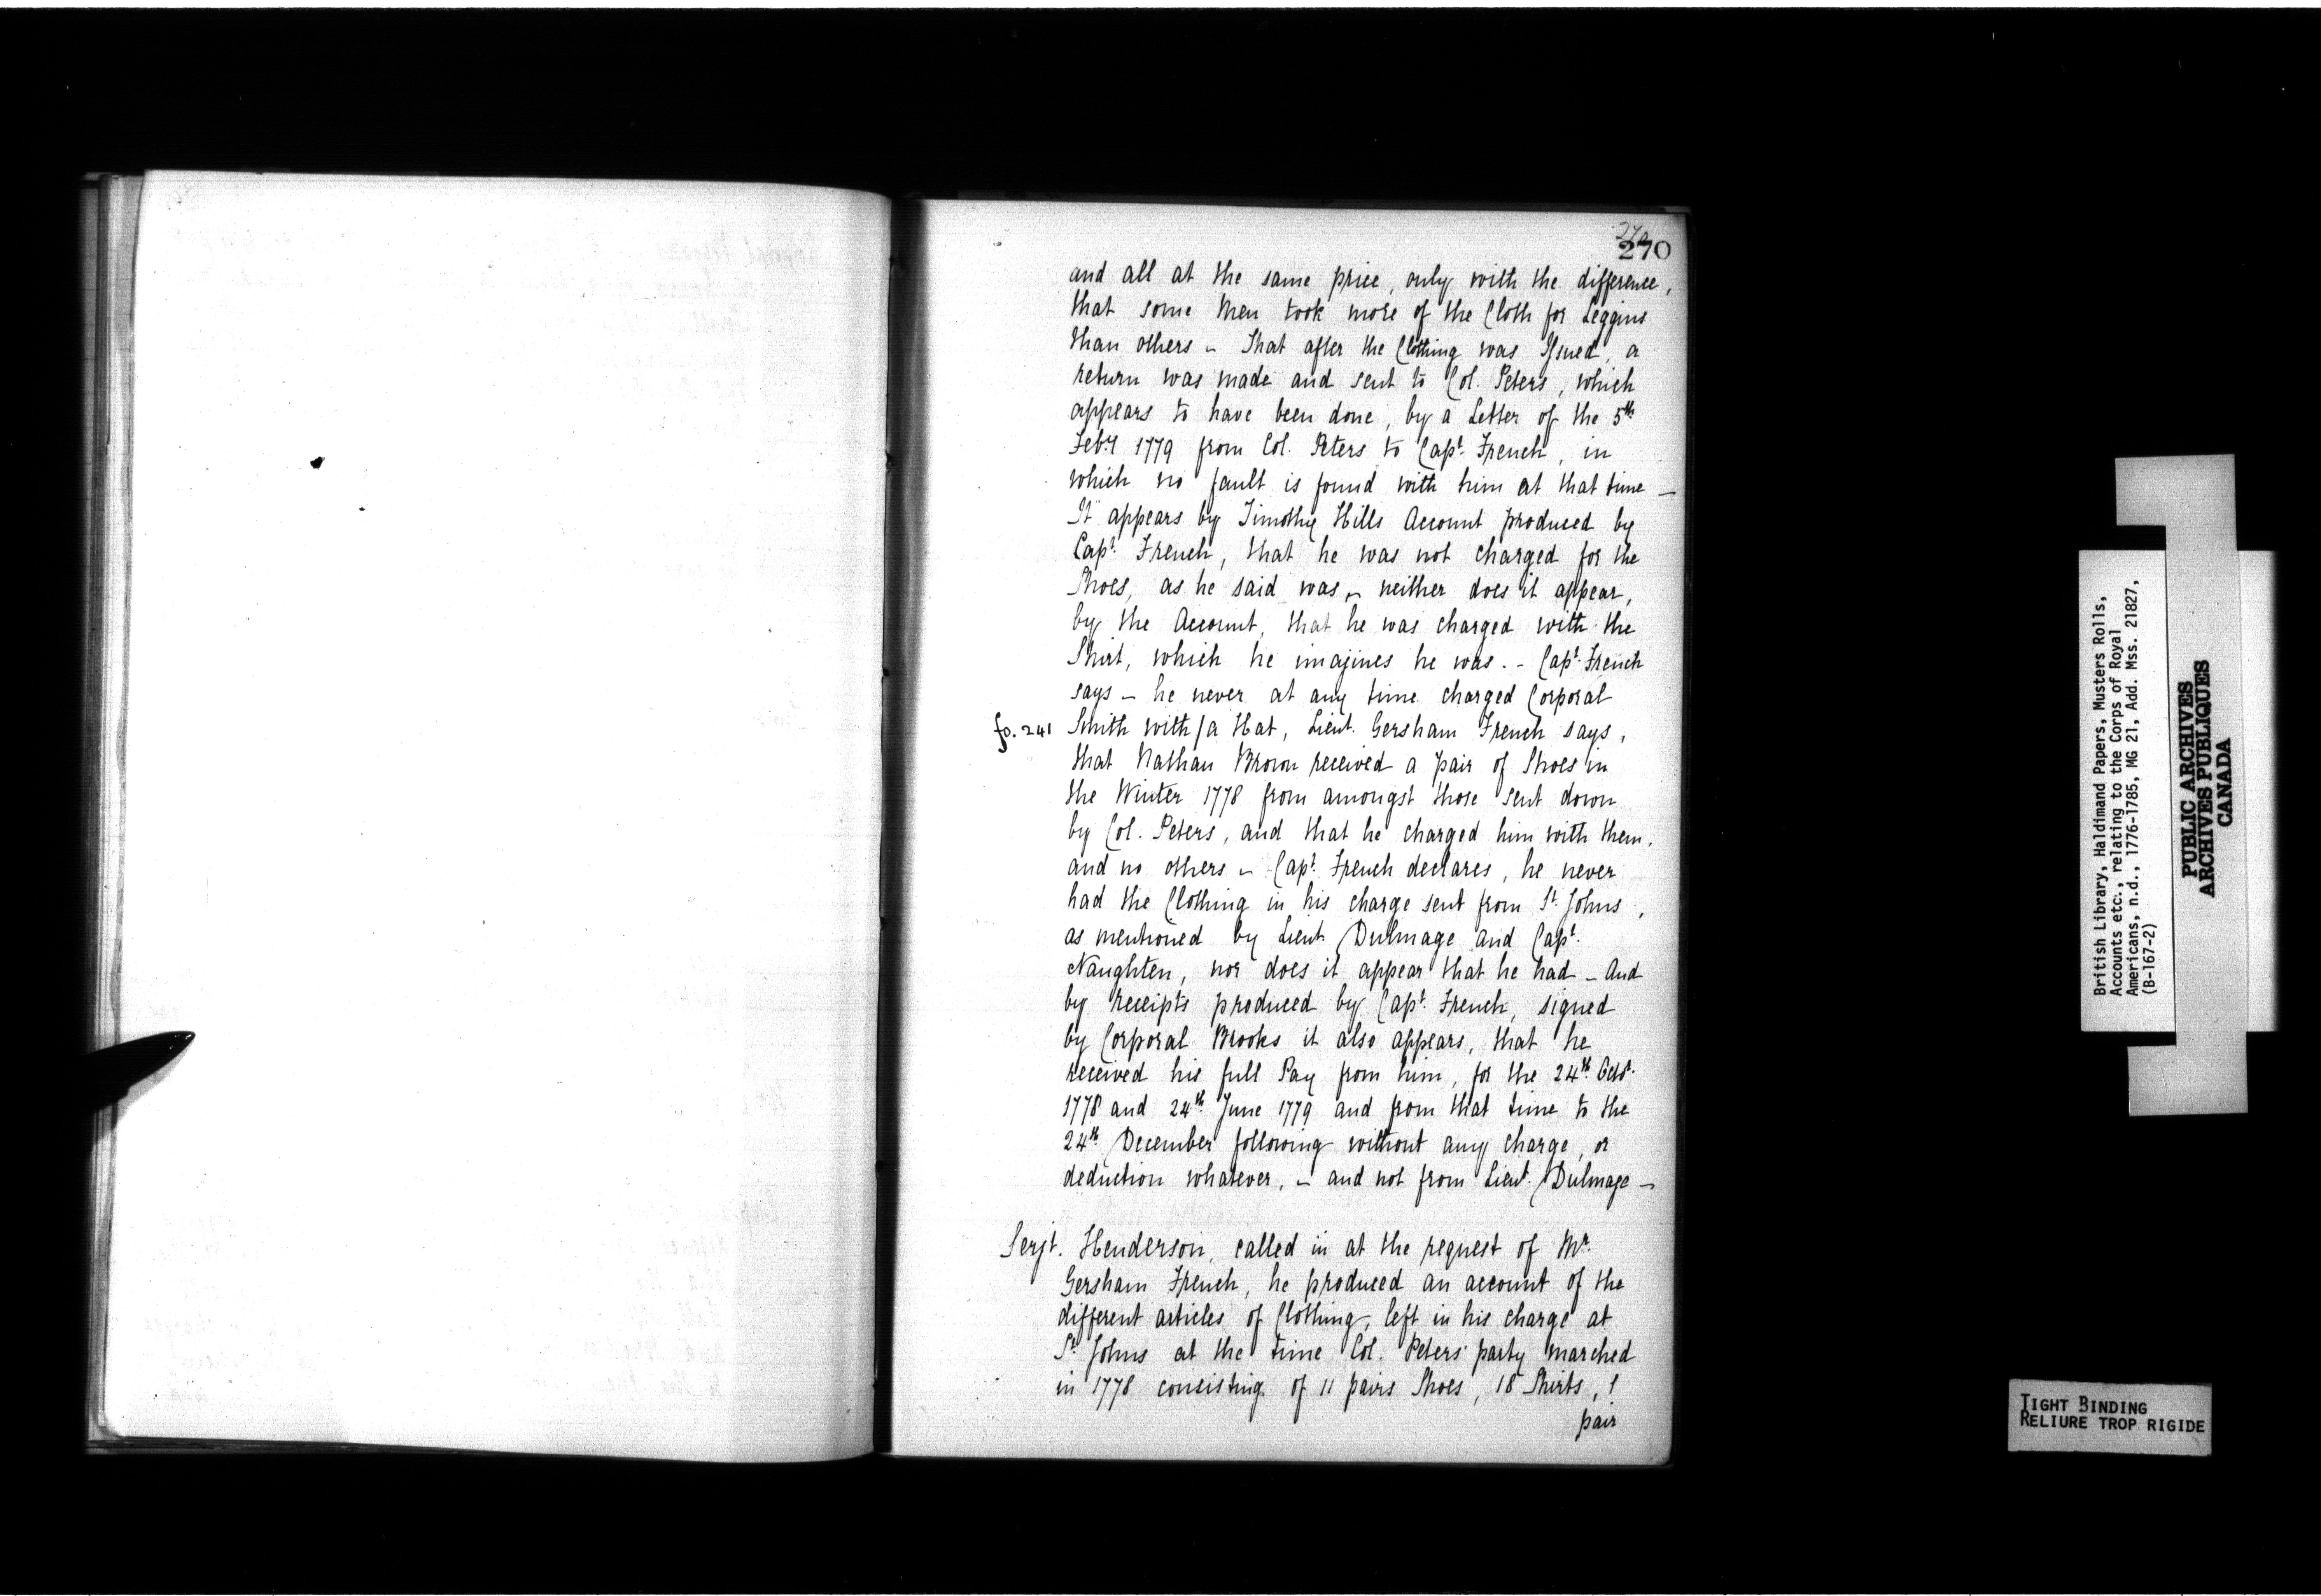 270
270
and all at the same price, only with the difference,
that some Men took more of the Cloth for Leggins
than others - That after the Clothing was Issued, a
return was made and sent to Col. Peters, which
appears to have been done, by a Letter of the 5th
Feby 1779 from Col. Peters to Capt. French, in
which no fault is found with him at that time -
It appears by Timothy Hills Account produced by
Capt. French, that he was not charged for the
Shoes, as he said was, - neither does it appear,
by the Account, that he was charged with the
Shirt, which he imagines he was. - Capt. French
says - he never at any time charged Corporal
fo. 241 Smith with/a Hat, Lieut. Gersham French says,
that Nathan Brown received a pair of Shoes in
the Winter 1778 from amongst those sent down
by Col. Peters, and that he charged him with them,
and no others - Capt. French declares, he never
had the Clothing in his charge sent from St. Johns,
as mentioned by Lieut Dulmage and Capt.
Naughten, nor does it appear that he had - And
by receipts produced by Capt. French, signed
by Corporal Brooks it also appears, that he
received his full Pay from him, for the 24th Octr.
1778 and 24th June 1779 and from that time to the
24th December following without any charge, or
deduction whatever, - and not from Lieut. Dulmage -
Serjt. Henderson, called in at the request of Mr.
Gersham French, he produced an account of the
different articles of Clothing, left in his charge at
St. Johns at the time Col. Peters' party marched
in 1778 consisting of 11 pairs Shoes, 18 Shirts, 1
pair
British Library, Haldimand Papers, Musters Rolls,
Accounts etc., relating to the Corps of Royal
Americans, n.d., 1776-1785, MG 21, Add. Mss. 21827,
(B-167-2)
PUBLIC ARCHIVES
ARCHIVES PUBLIQUES
CANADA
TIGHT BINDING
RELIURE TROP RIGIDE